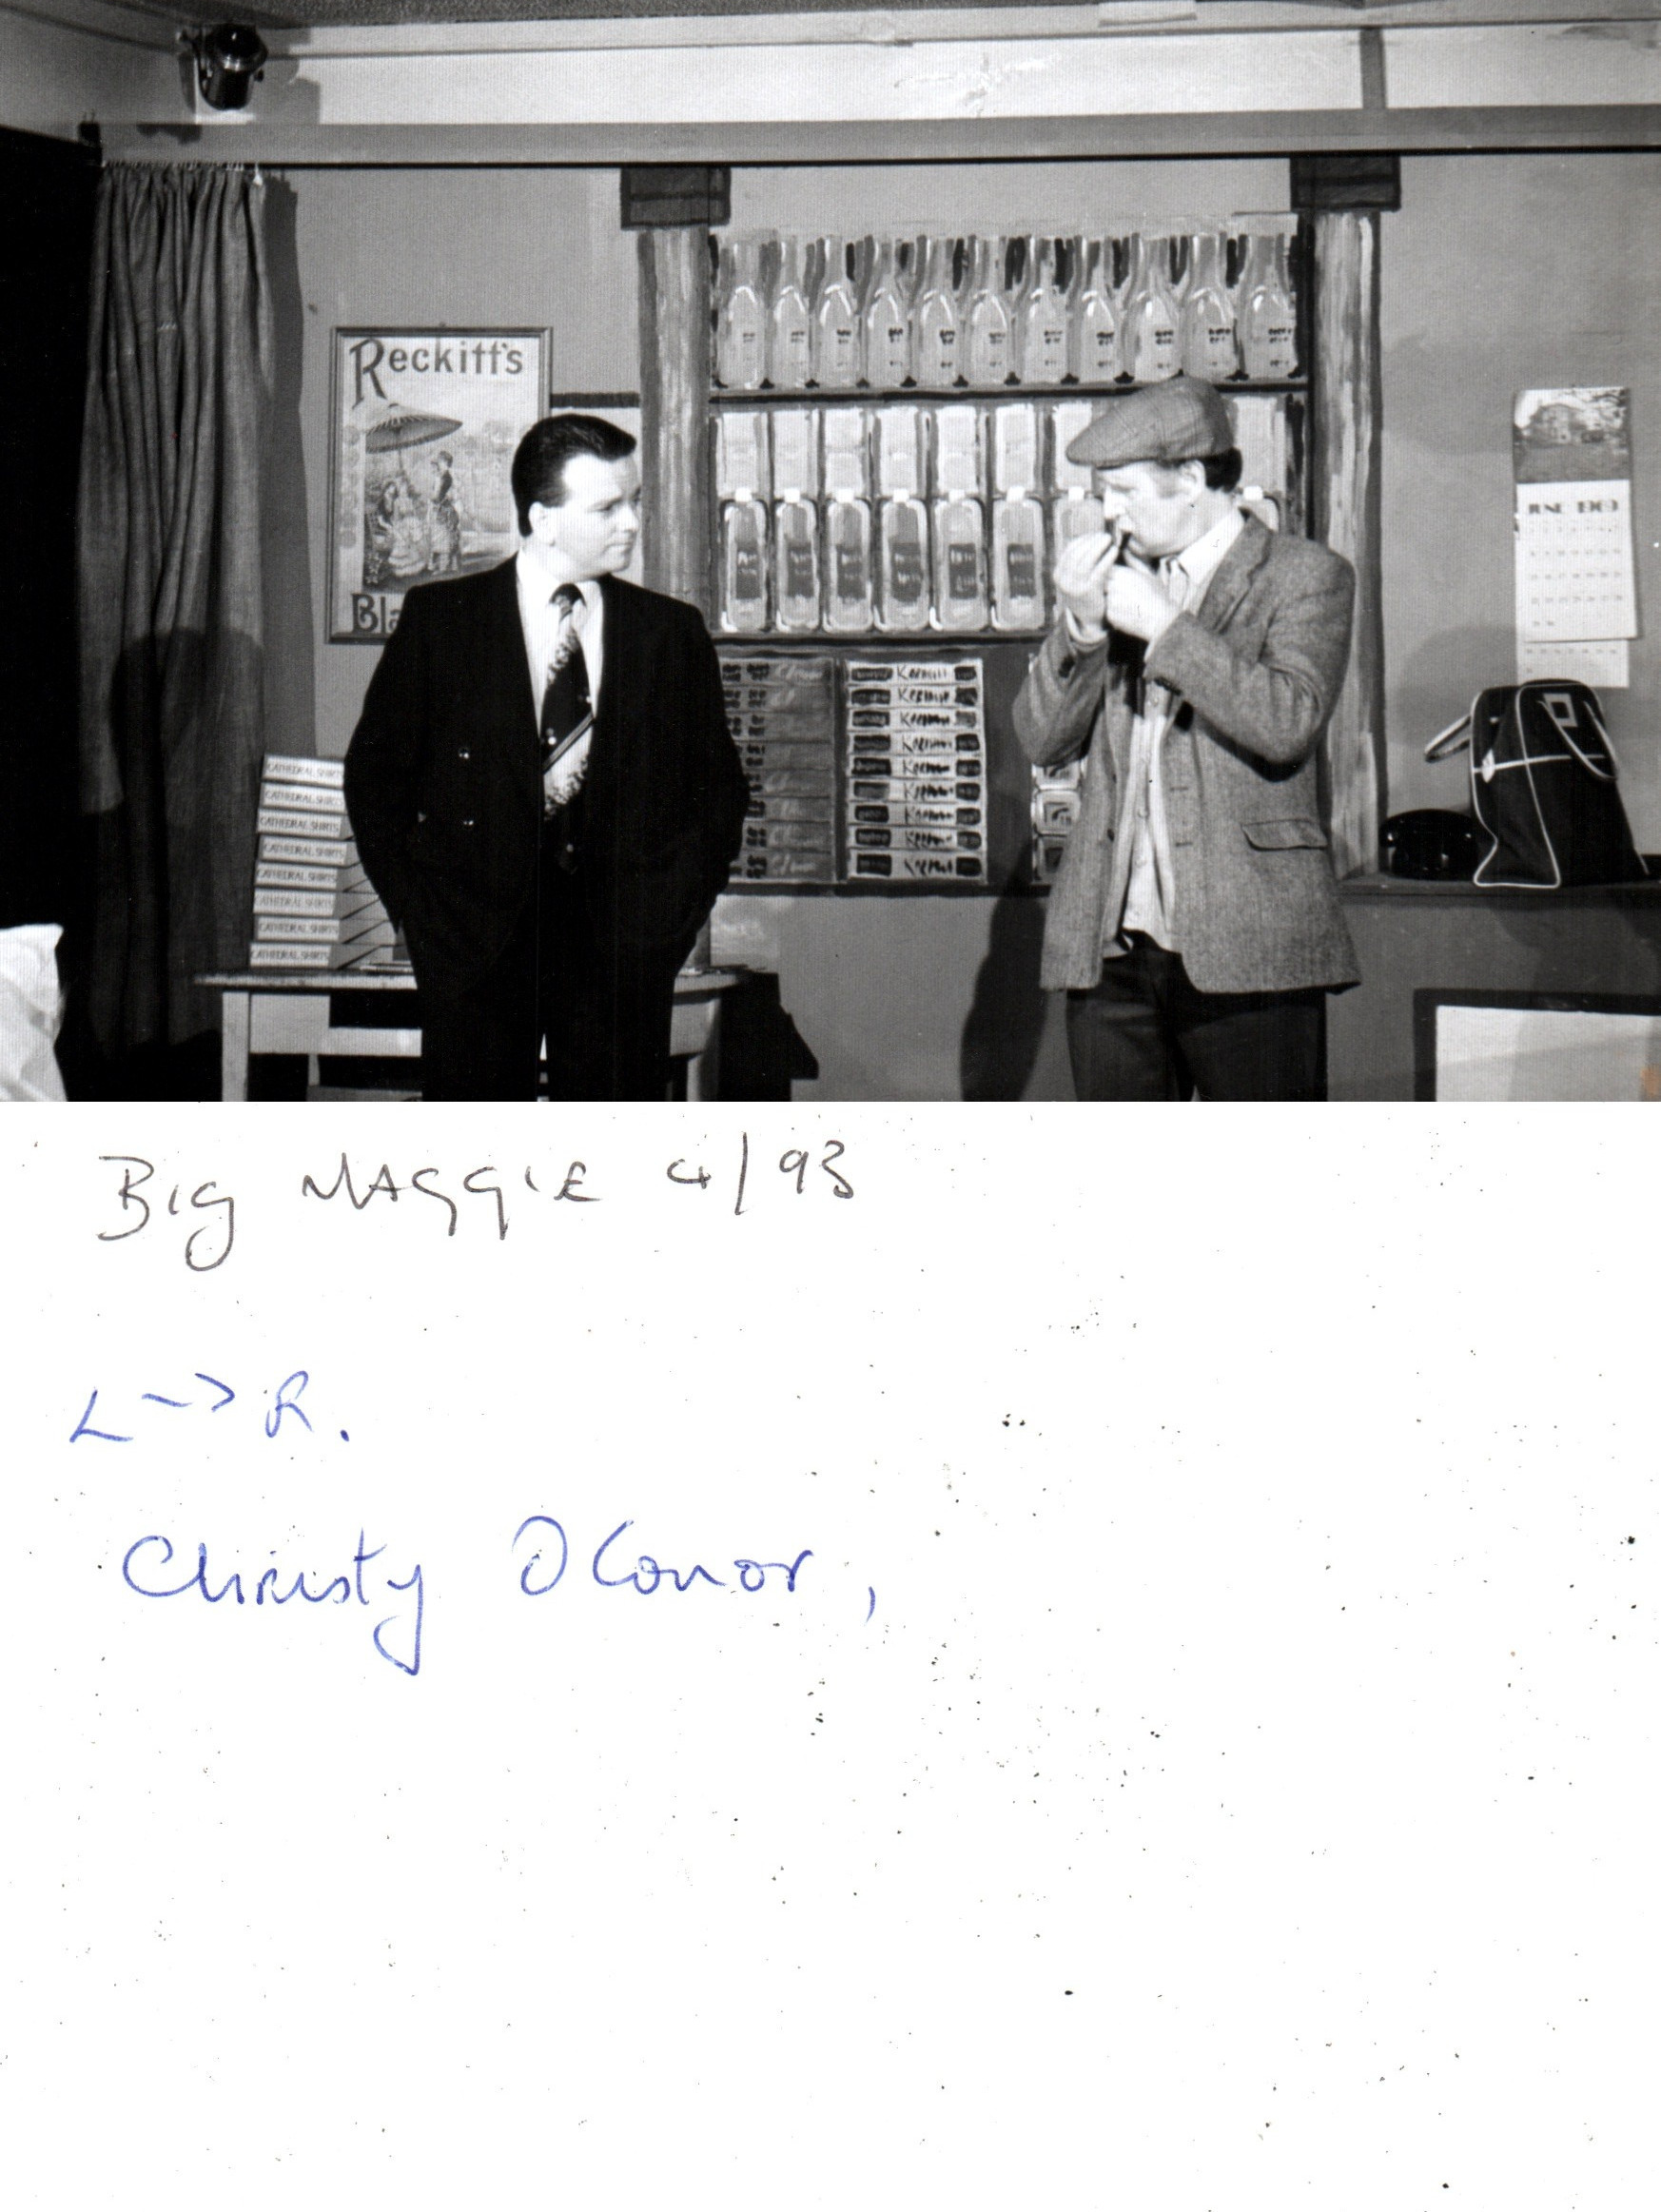 Reckitt's
Bl
JUNE 1969
CATHEDRAL SHIRTS
CATHEDRAL SHIRTS
CATHEDRAL SHIRTS
CATHEDRAL SHIRTS
CATHEDRAL SHIRTS
CATHEDRAL SHIRTS
CATHEDRAL SHIRTS
CATHEDRAL SHIRTS
BIG MAGGIE 4/93
L --> R.
Christy O'Conor,